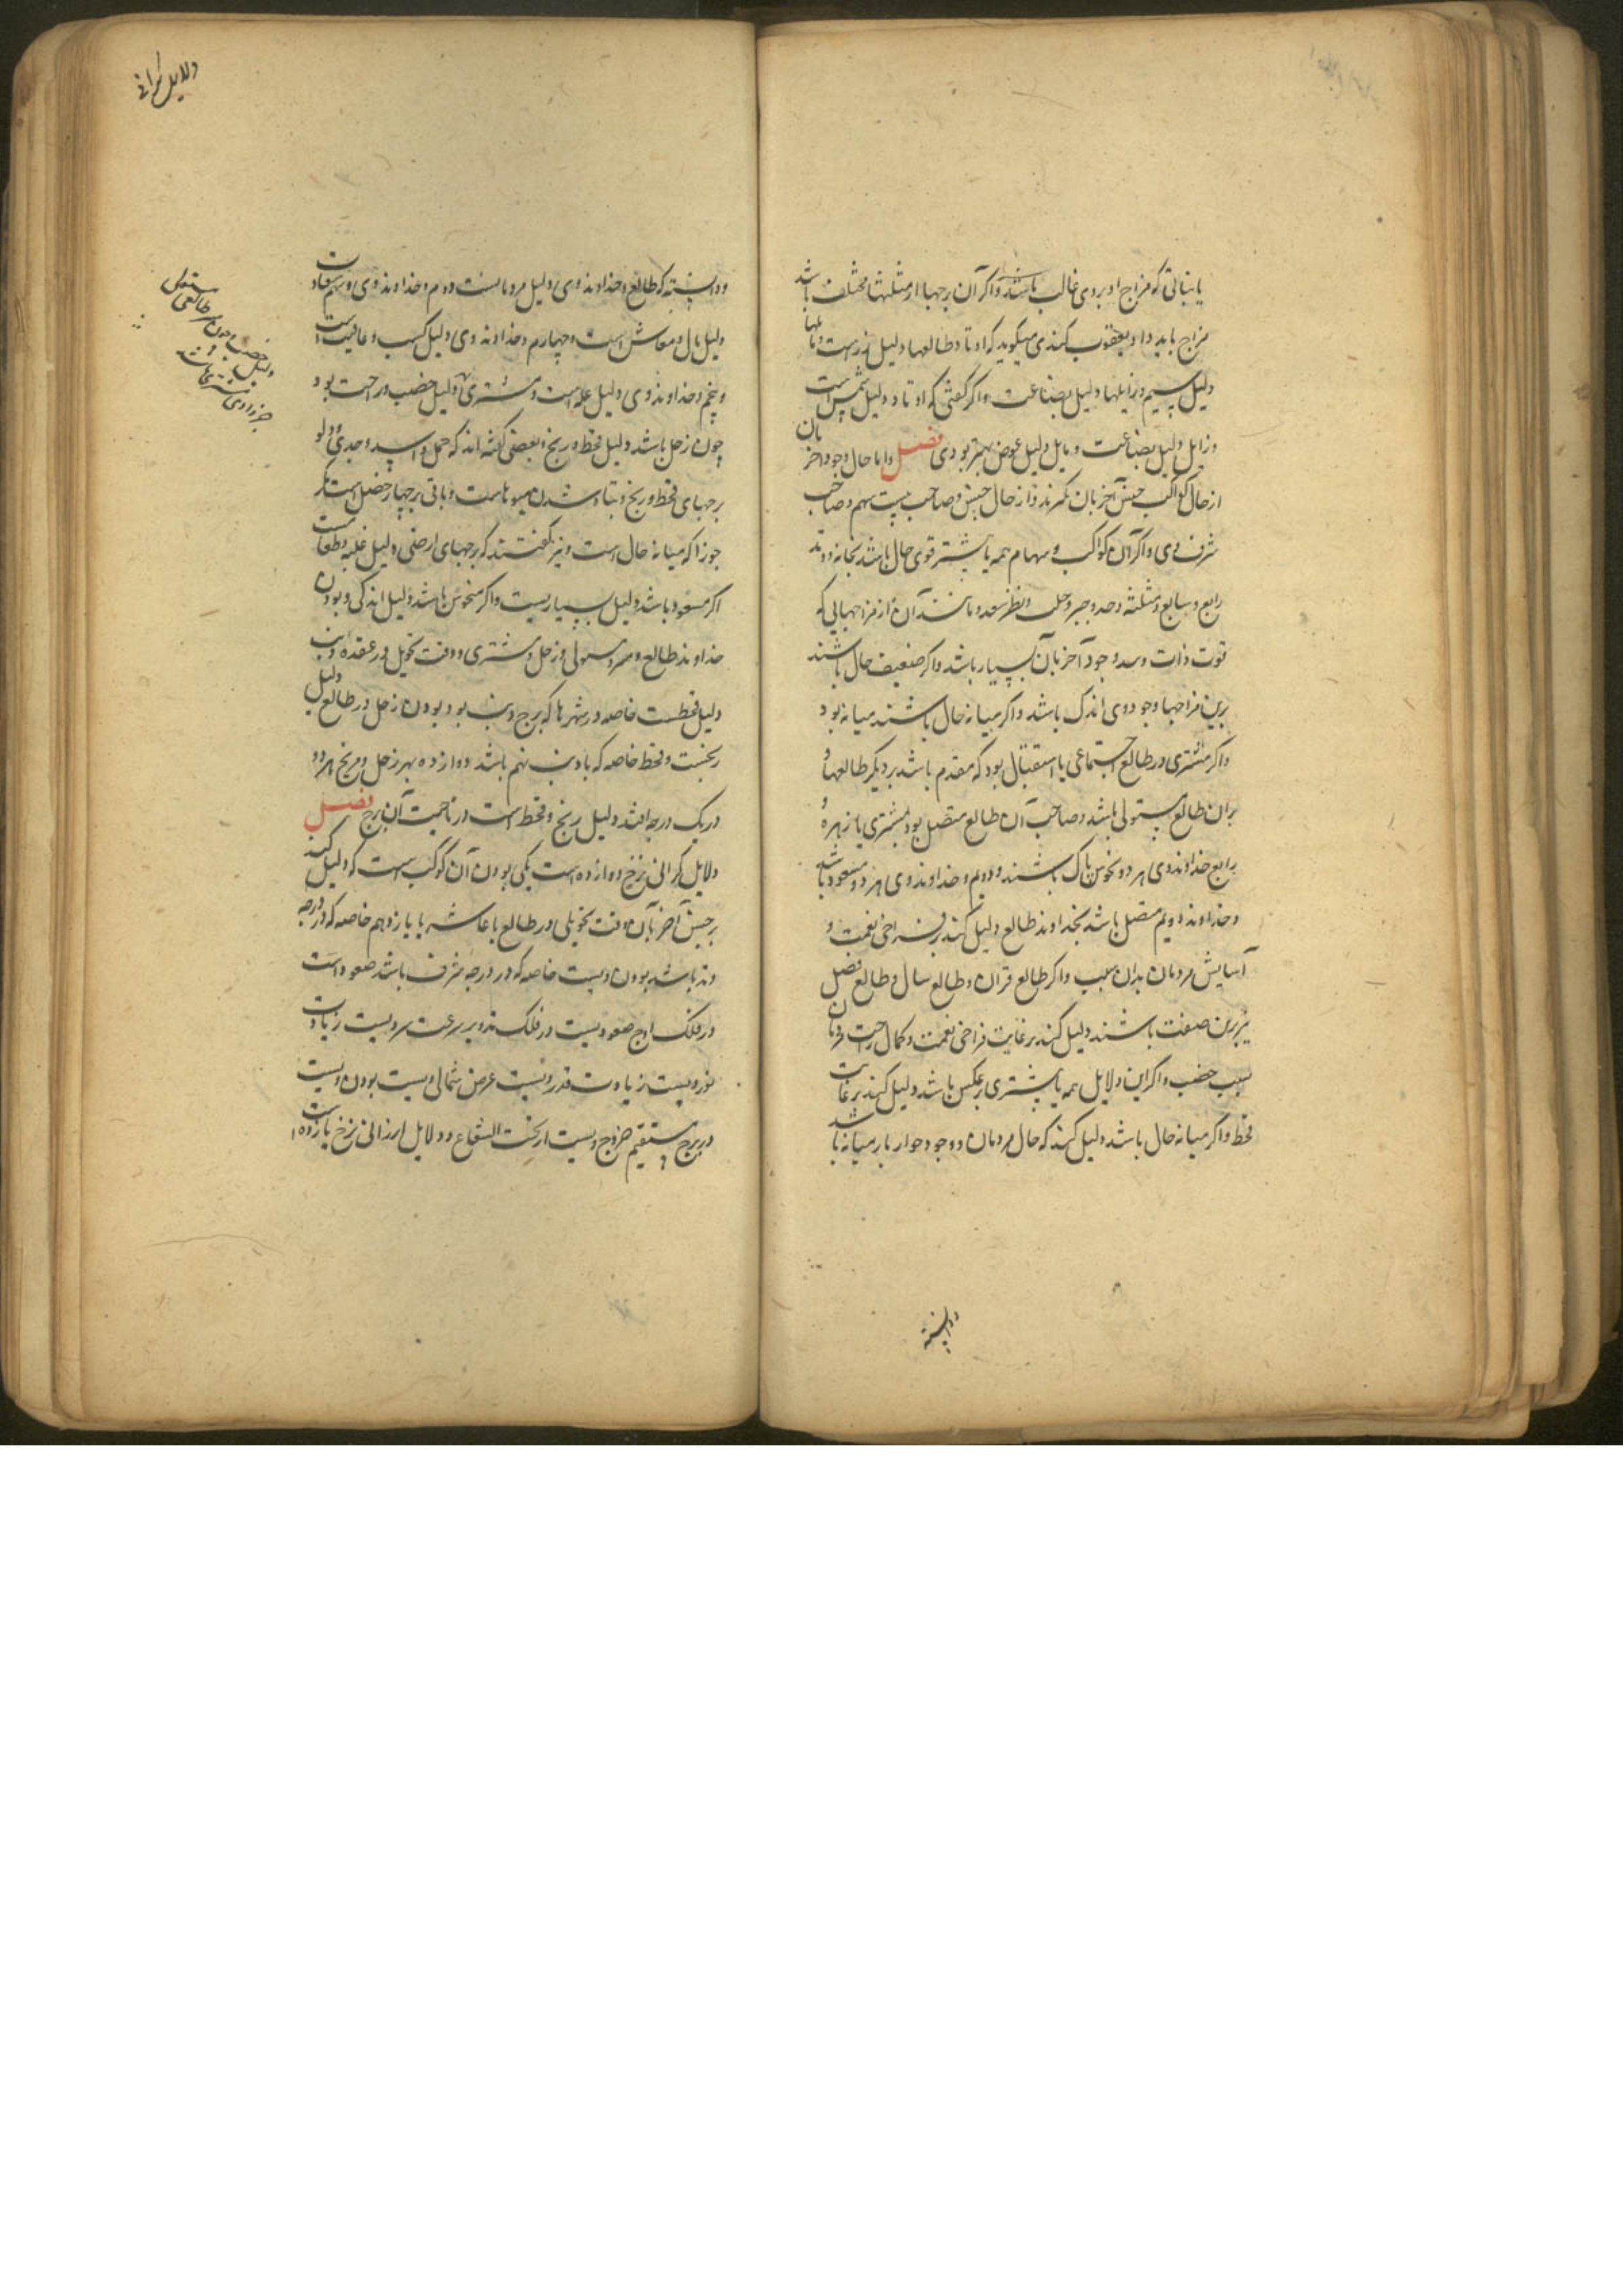 یا نباتی که مزاج او بر وی غالب باشد و اگر آن برجها از مثلثها مختلف باشد
مزاج باید داد و یعقوب کندی میگوید که اوتاد طالعها دلیل زرست و مایلها
دلیل سیم و زایلها دلیل بضاعت و اگر گفتی که اوتاد دلیل ثمن است
و زایل دلیل بضاعت و مایل دلیل عوض بهتر بودی فصل و اما حال وجود آخریان
از حال کواکب جنس آخریان نگرند و از حال جنس و صاحب بیت سهم و صاحب
شرف وی و اگر آن کواکب و سهام همه یا بیشتر قوی حال باشد بخانه و وتد
رابع و سابع و مثلثه و حد و وجه و نظر سعد و مانند آن از مزاجهایی که
قوت ذات وجود آخریان بسیار باشد و اگر ضعیف حال باشند
برین مزاجها وجود وی اندک باشد و اگر میانه حال باشند میانه بود
و اگر مشتری در طالع اجتماعی یا استقبال بود که مقدم باشد بر دیگر طالعها و
بران طالع مستولی باشد و صاحب آن طالع متصل بود بمشتری یا زهره و
رابع خداوند وی هر دو از نحوس پاک باشند و دویم و خداوند وی هر دو مسعود باشد
و خداوند دویم متصل باشد بخداوند طالع دلیل کند بر فراخی نعمت و
آسایش مردمان بدان سبب و اگر طالع قران و طالع سال و طالع فصل
نیز برین صفت باشند دلیل کند بر غایت فراخی نعمت و کمال راحت مردمان
بسبب خصب و اگر این دلایل همه یا بیشتری بر عکس باشد دلیل کند بر غایت
قحط و اگر میانه حال باشد دلیل کند که حال مردمان و وجود خواربار میانه باشد
و دانسته
دلایل گرانی
و دانسته که طالع و خداوند وی دلیل مردمانست و دوم و خداوند وی و سهم سعادت
دلیل مال و معاش است و چهارم و خداوند وی دلیل کسب و عاقبت است
و پنجم و خداوند وی دلیل غله است و مشتری دلیل خصب و راحت بود
چون زحل باشد دلیل قحط و رنج و بعضی گفته اند که حمل و اسد و جدی و دلو
برجهای قحط و رنج و تباه شدن میوهاست و باقی برجها خصب است مگر
جوزا که میانه حال است و نیز گفتند که برجهای ارضی دلیل غله و طعام است
اگر مسعود باشد دلیل بسیاریست و اگر منحوس باشد دلیل اندکی و بودن
خداوند طالع و مستولی و زحل و مشتری وقت تحویل در عقده ذنب
دلیل قحطست خاصه در شهرها که برج ذنب بود و بودن زحل در طالع دلیل
رنجست و قحط خاصه که با ذنب بهم باشد و دوازده بهر زحل و مریخ هر دو
در یک درجه افتد دلیل رنج و قحط است در ناحیت آن برج فصل
دلایل گرانی نرخ دوازده است یکی بودن آن کوکب است که دلیل کند
بر جنس آخریان وقت تحویل در طالع یا عاشر یا یازدهم خاصه که در درجه
وتد باشد بودن ویست خاصه که در درجه شرف باشد صعود است
در فلک اوج صعود ویست در فلک تدویر سرعت سیر ویست زیادت
نور ویست زیادت قدر ویست عرض شمالی ویست بودن ویست
در برج مستقیم خروج ویست از تحت الشعاع و دلایل ارزانی نرخ یازده
دلیل خصب و چون بر طالعی مستولی
خداوند وی مشتری باشد